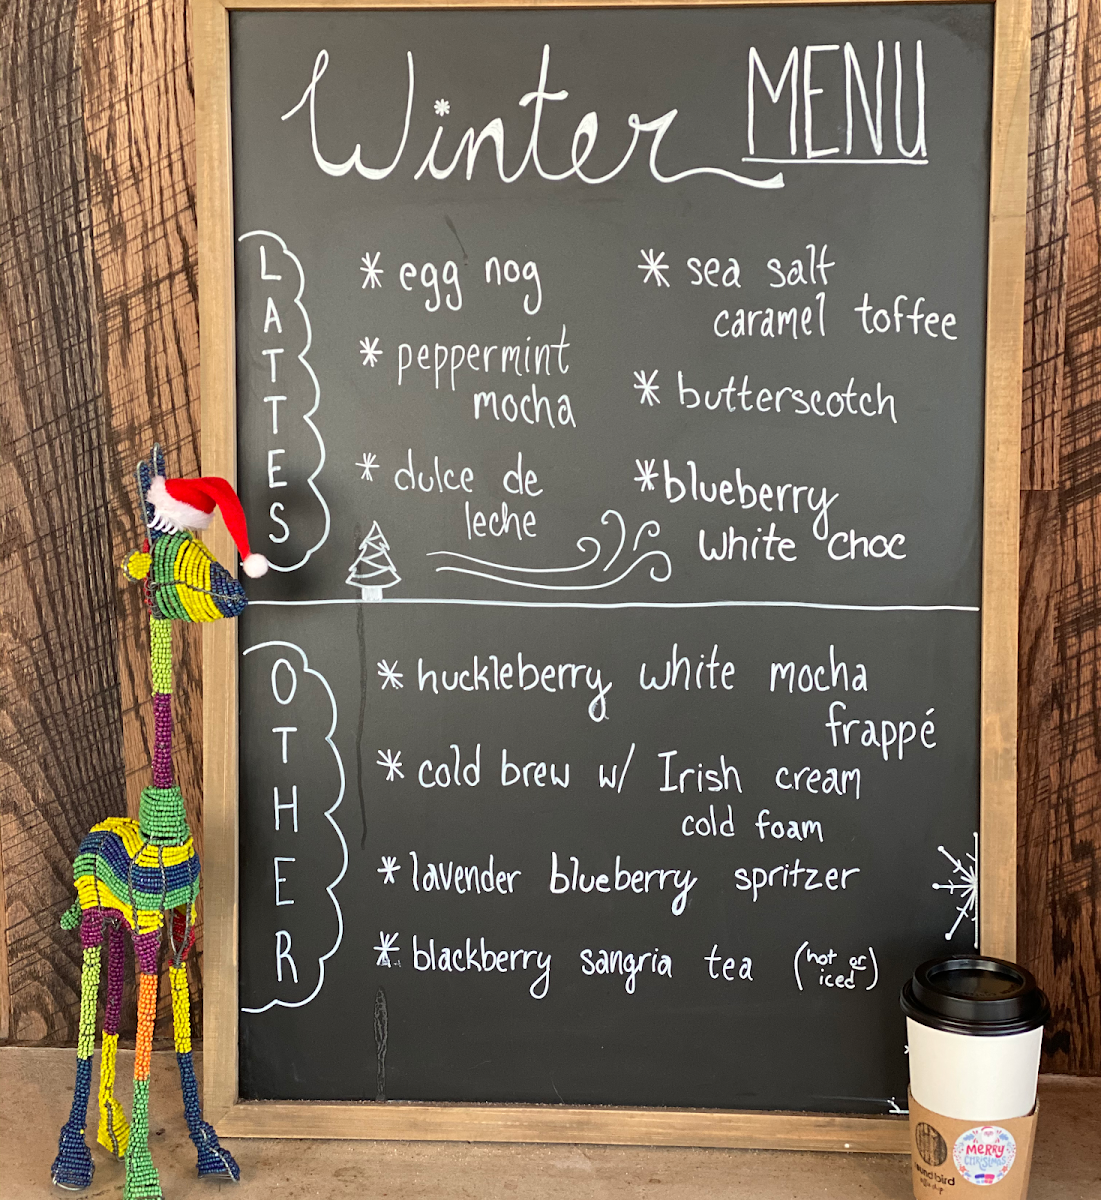 Winter MENU
LATTES
* egg nog
* peppermint
mocha
* dulce de
leche
* sea salt
caramel toffee
* butterscotch
* blueberry
white choc
OTHER
* huckleberry white mocha
frappé
* cold brew w/ Irish cream
cold foam
* lavender blueberry spritzer
* blackberry sangria tea (hot or
iced)
MERRY
CHRISTMAS
bird